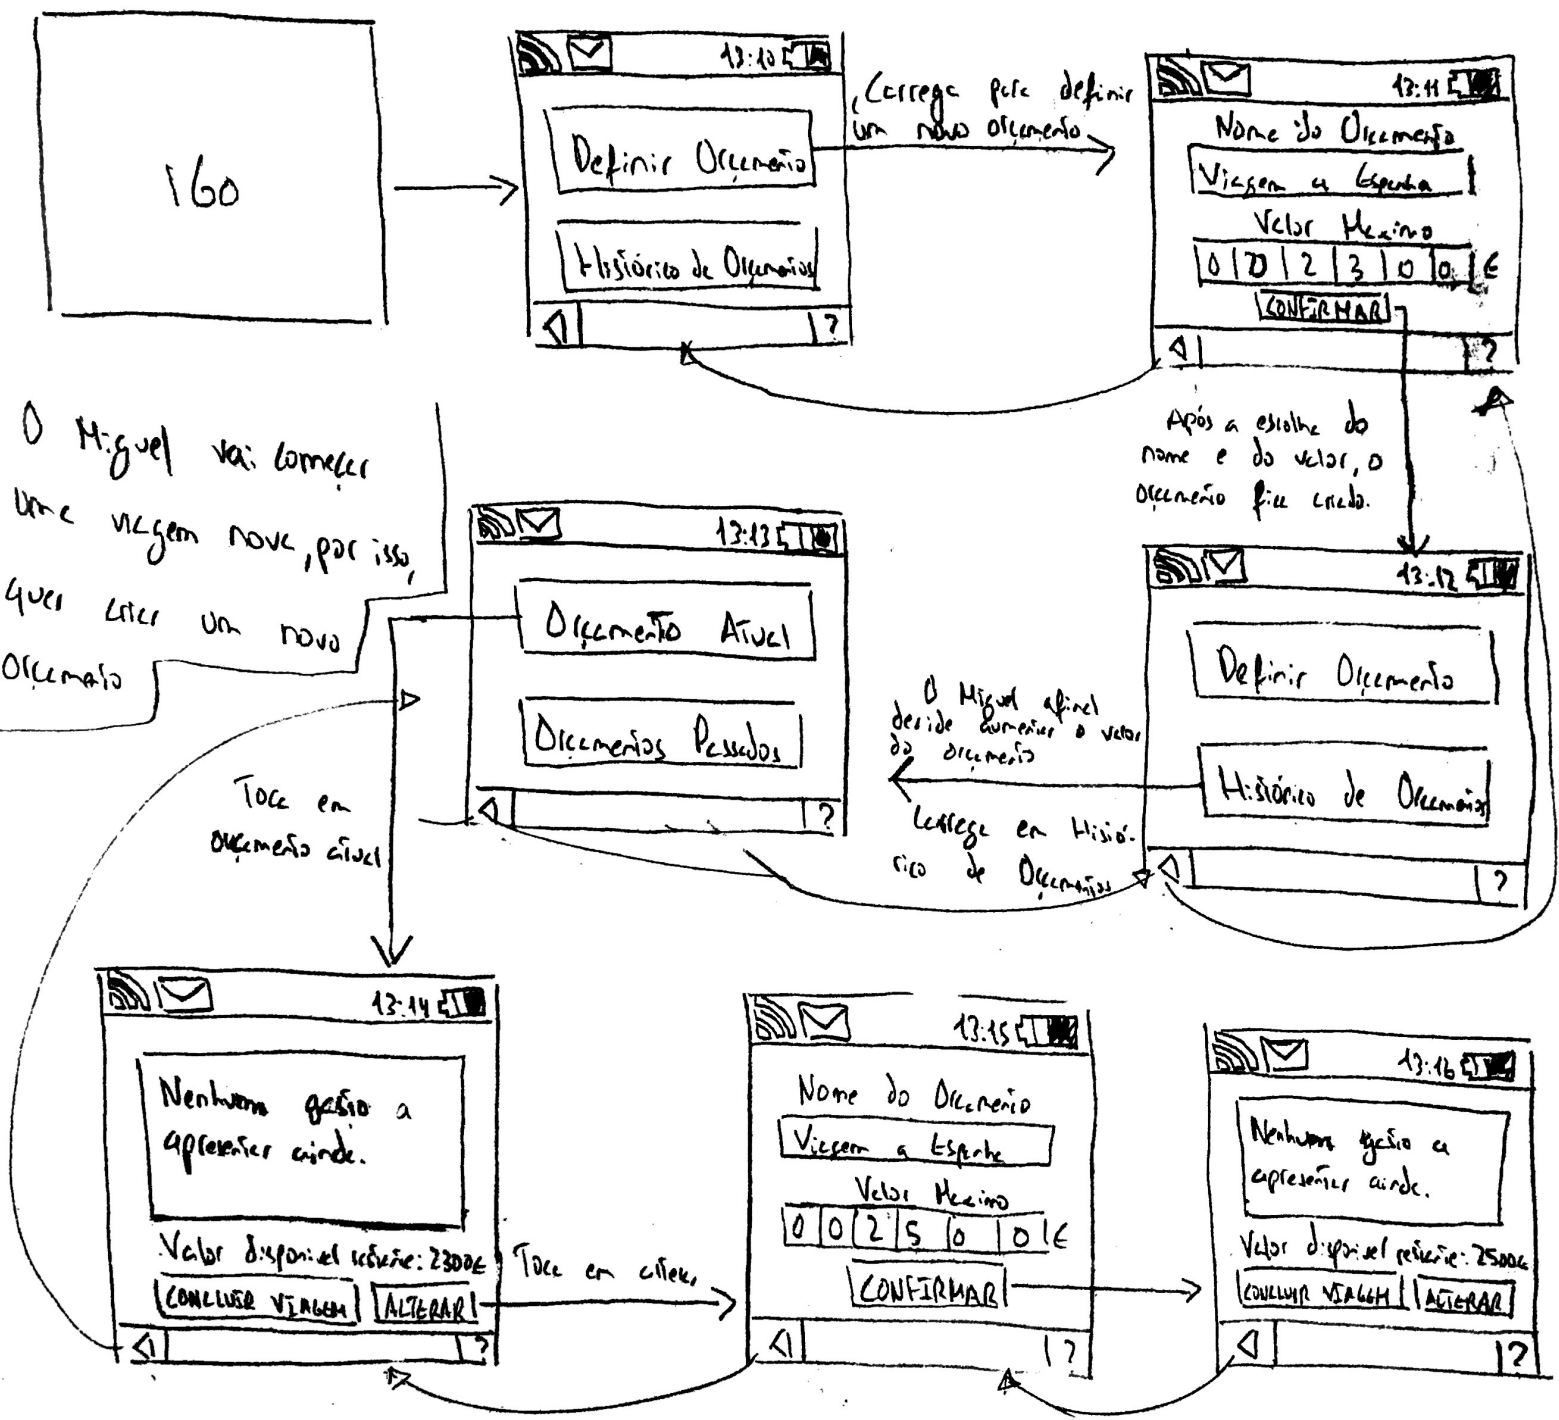 iGo
13:10
Definir Orçamento
Histórico de Orçamentos
?
Carrega para definir
um novo orçamento
13:11
Nome do Orçamento
Viagem a Espanha
Valor Maximo
0 0 2 3 0 0 €
CONFIRMAR
?
O Miguel vai começar
uma viagem nova, por isso,
quer criar um novo
Orçamento
Após a escolha do
nome e do valor, o
orçamento fica criado.
13:12
Definir Orçamento
Histórico de Orçamentos
?
O Miguel afinal
decide aumentar o valor
do orçamento
Carrega em Histó-
rico de Orçamentos
13:13
Orçamento Atual
Orçamentos Passados
?
Toca em
orçamento atual
13:14
Nenhum gasto a
apresentar ainda.
Valor disponivel restante: 2300€
CONCLUIR VIAGEM
ALTERAR
?
Toca em alterar
13:15
Nome do Orçamento
Viagem a Espanha
Valor Maximo
0 0 2 5 0 0 €
CONFIRMAR
?
13:16
Nenhum gasto a
apresentar ainda.
Valor disponivel restante: 2500€
CONCLUIR VIAGEM
ALTERAR
?